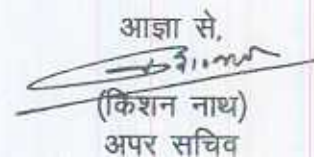 आज्ञा से,
(किशन नाथ)
अपर सचिव